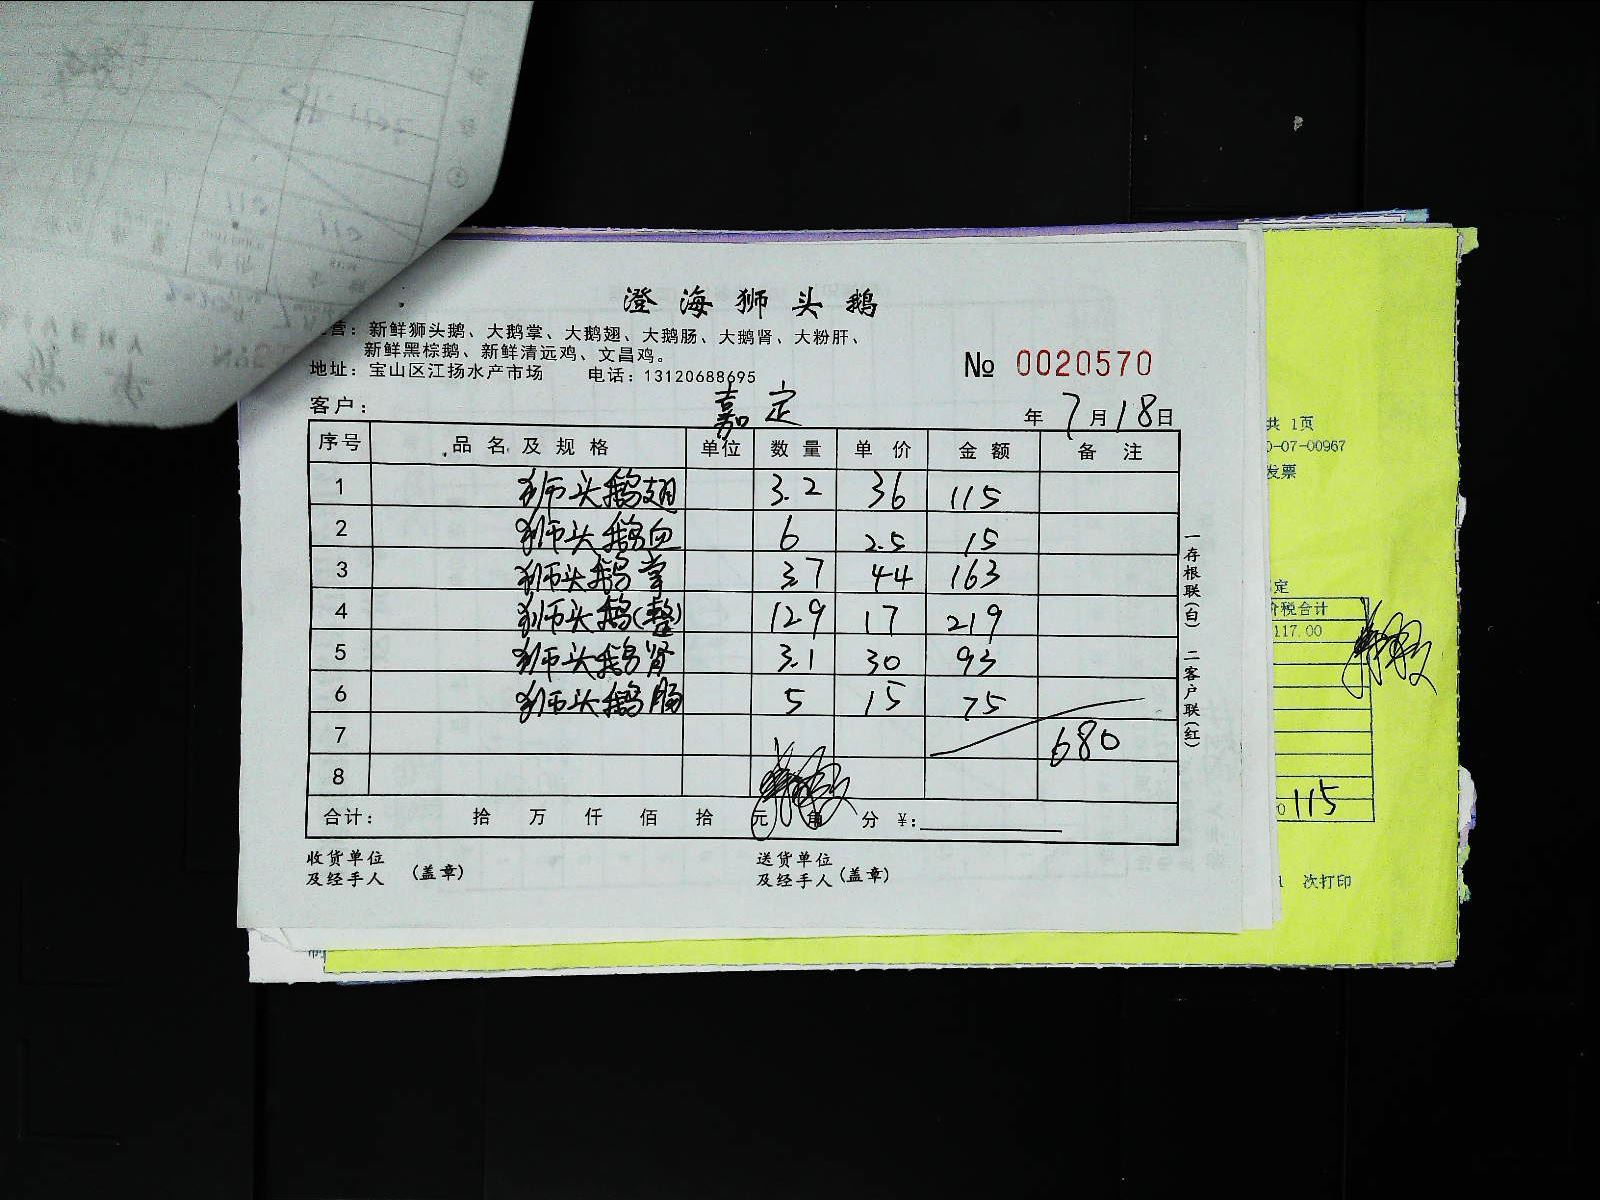 澄海狮头鹅
营：新鲜狮头鹅、大鹅掌、大鹅翅、大鹅肠、大鹅肾、大粉肝、
新鲜黑棕鹅、新鲜清远鸡、文昌鸡。
地址：宝山区江扬水产市场 电话：13120688695
№ 0020570
客户： 嘉定 年 7月18日
序号 品名及规格 单位 数量 单价 金额 备注
1 狮头鹅翅 3.2 36 115
2 狮头鹅血 6 2.5 15
3 狮头鹅掌 37 44 163
4 狮头鹅(整) 129 17 219
5 狮头鹅肾 3.1 30 93
6 狮头鹅肠 5 15 75
7 680
8
合计： 拾 万 仟 佰 拾 元 角 分 ¥：
收货单位
及经手人 (盖章)
送货单位
及经手人 (盖章)
一存根联(白) 二客户联(红)
共 1页
0-07-00967
发票
定
价税合计
117.00
115
次打印